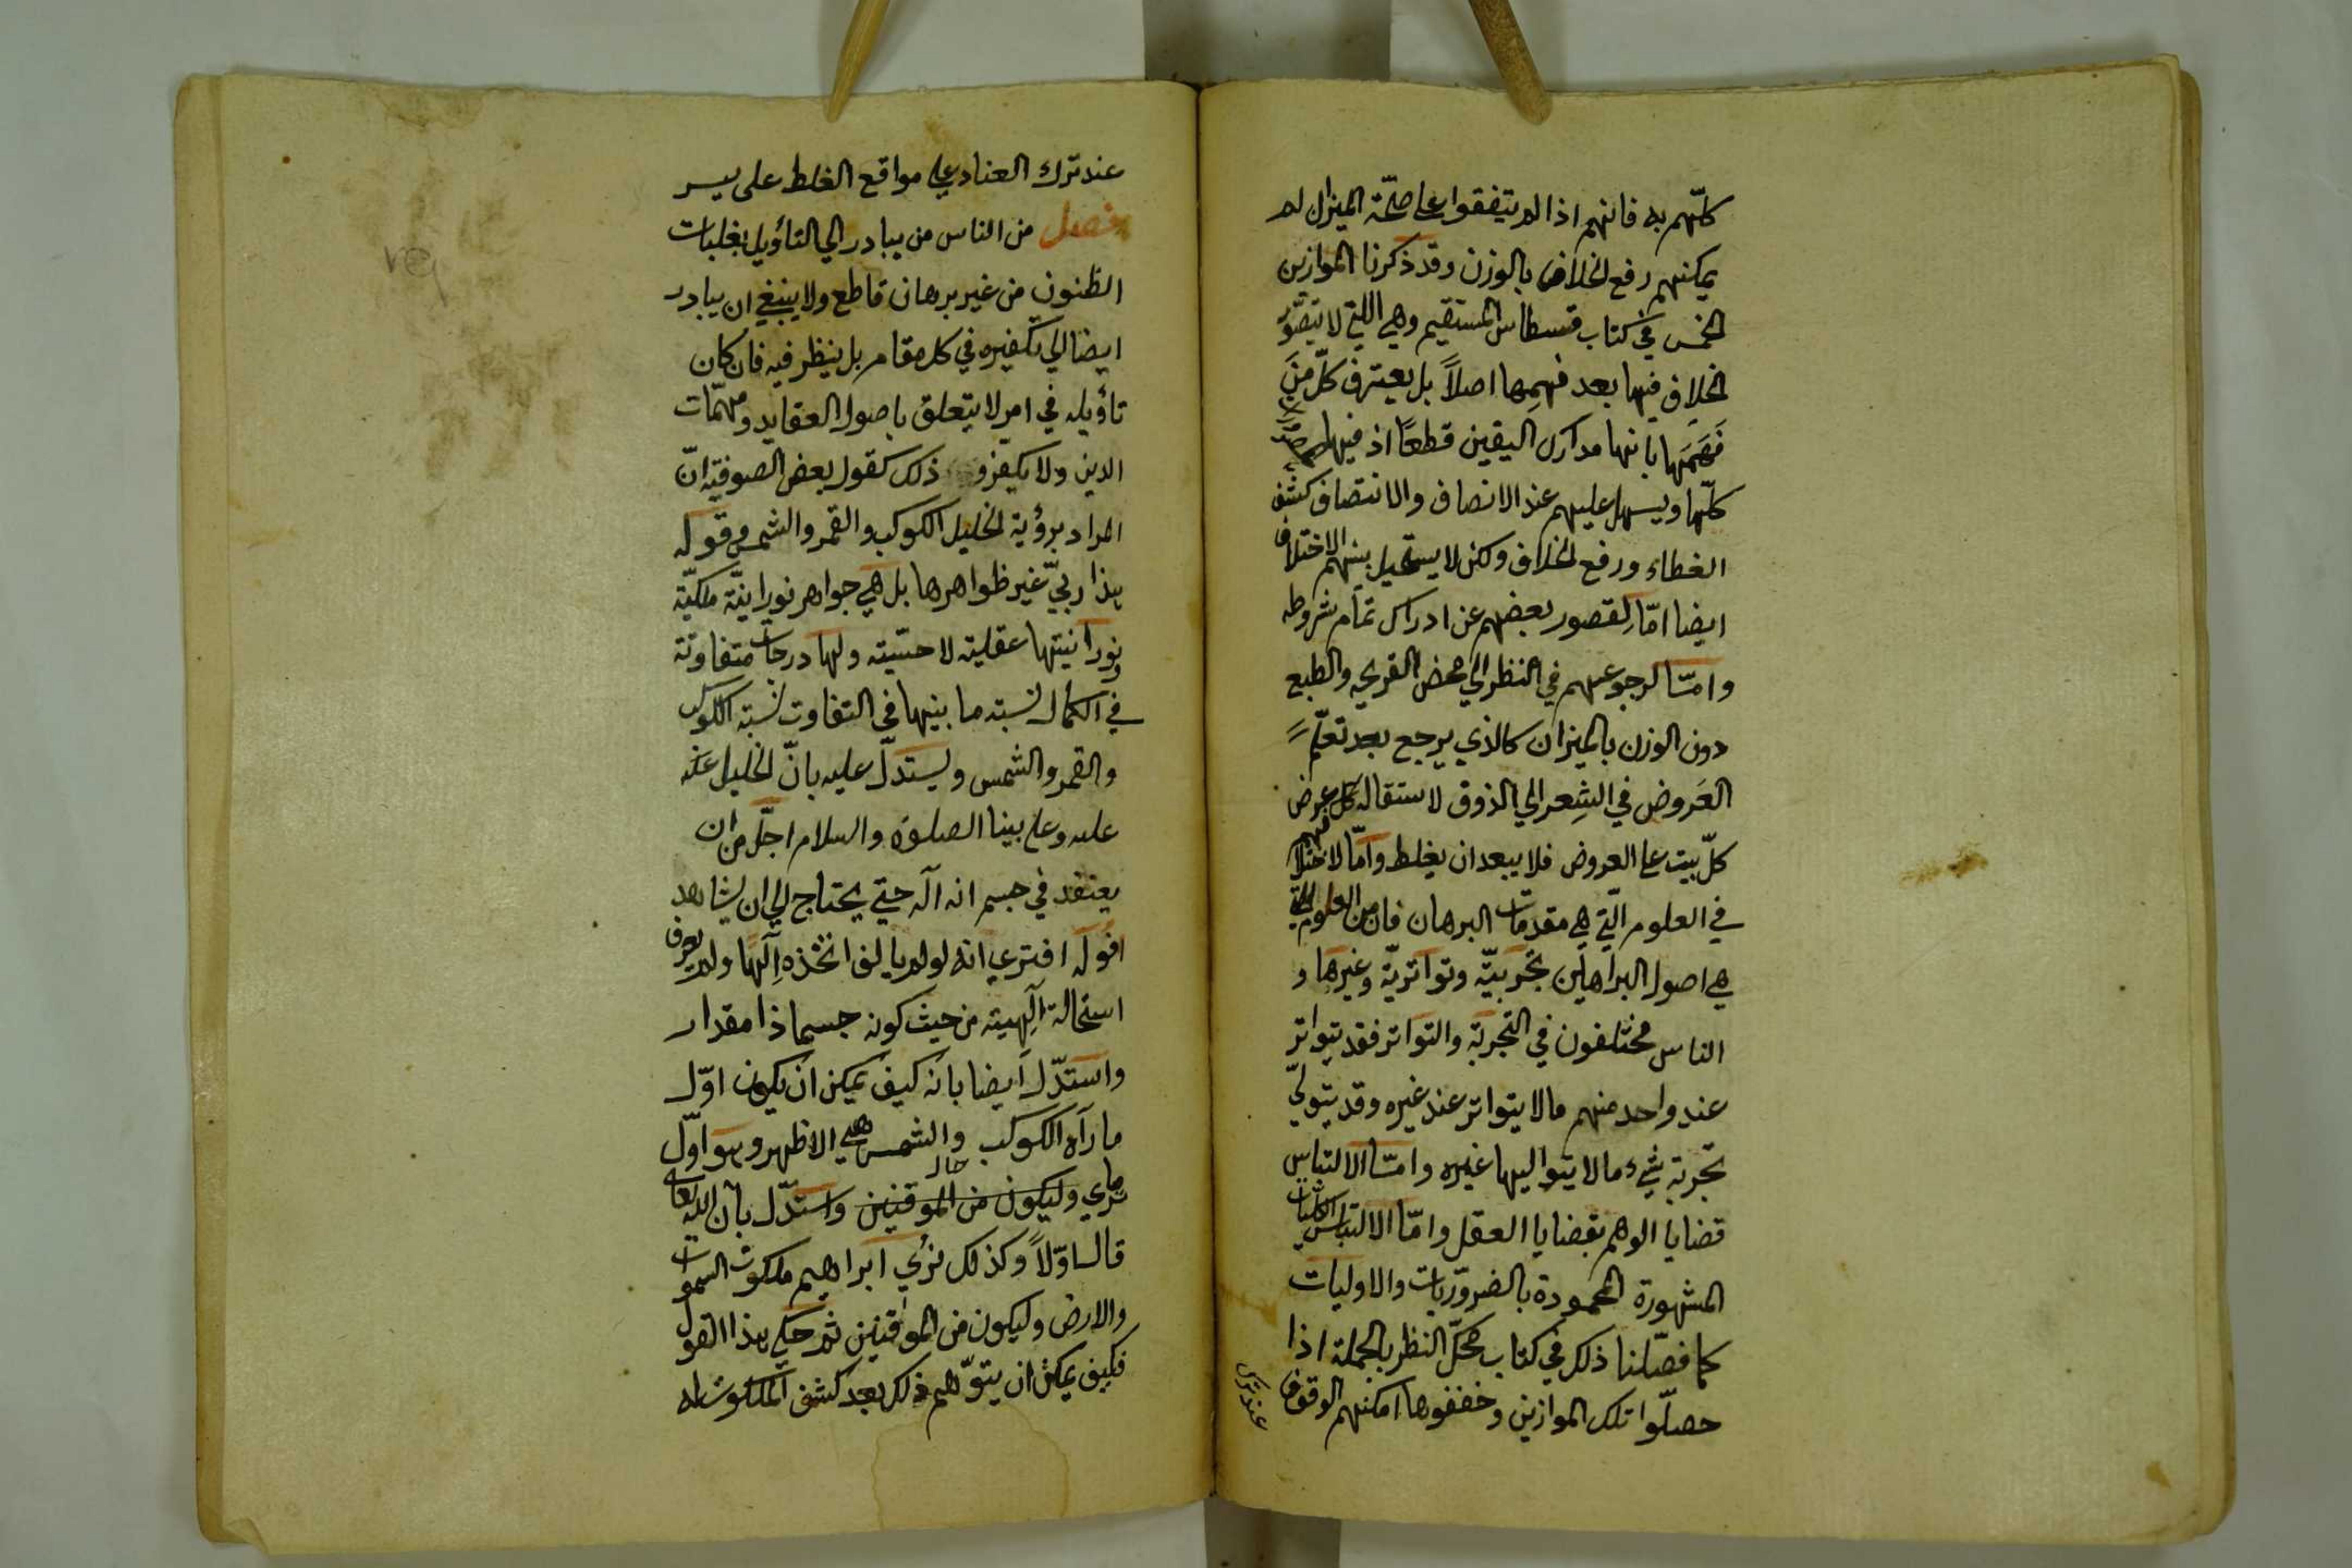 كلّهم به فانهم اذا لم يتفقوا على صحّة الميزان لم
يمكنهم رفع الخلاف بالوزن وقد ذكرنا الموازين
الخمس في كتاب قسطاس المستقيم وهي اللتي لا يتصوّر
الخلاف فيها بعد فهمها اصلاً بل يعترف كلّ من
فهمها بانها مدارك اليقين قطعًا اذ فيها
كلّها ويسهل عليهم عند الانصاف والانتصاف كشف
الغطاء ورفع الخلاف ولكن لا يستحيل بينهم الاختلاف
ايضا امّا لقصور بعضهم عن ادراك تمام شروطه
وامّا لرجوعهم في النظر الي محض القريحه والطبع
دون الوزن بالميزان كالذي يرجع بعد تعلّم
العَروض في الشِعر الي الذوق لاستقاله كل عرض
كلّ بيت على العروض فلا يبعد ان يغلط وامّا لاختلافهم
في العلوم الّتي هي مقدمات البرهان فان من العلوم التي
هي اصول البراهين تجربيّة وتواتريّة وغيرها و
الناس مختلفون في التجربة والتواتر فقد يتواتر
عند واحد منهم مالا يتواتر عند غيره وقد يتولّي
تجربة شيء مالا يتواليها غيره وامّا الالتباس
قضايا الوهم بقضايا العقل وامّا الالتباس الكليات
المشهورة المحمودة بالضروّريات والاوليات
كما فصّلنا ذلك في كتاب محكّ النظر بالجملة اذا
حصلّوا تلك الموازين وخففوها امكنهم الوقوف
عند ترك
عند ترك العناد على مواقع الغلط على يسر
فصل من الناس من يبادر الي التأويل بغلبات
الظنون من غير برهان قاطع ولا ينبغي ان يبادر
ايضا الي تكفيره في كل مقام بل ينظر فيه فان كان
تاؤيله في امر لا يتعلق باصول العقايد ومهمّات
الدين ولا يكفر و ذلك كقول بعض الصوفيّه انّ
المراد برؤية الخليل الكوكب والقمر والشمس وقوله
هذا ربيّ غير ظواهرها بل هي جواهر نورانيّة ملكيّة
ونورانيتها عقليته لا حسّيته ولها درجات متفاوتة
في الكمال نسبته ما بينها في التفاوت نسبة الكوكب
والقمر والشمس ويستدلّ عليه بانّ الخليل عنه
عليه وعلى نبينا الصلوة والسلام اجلّ من ان
يعتقد في جسم انه اله حتي يحتاج الي ان يشاهد
افوله افتري انه لو لم يافل اتخذه الٓها ولم يعرف
استحالة الٓهيته من حيث كونه جسما ذا مقدار
واستدّل ايضا بانه كيف يمكن ان يكون اوّل
ما رآه الكوكب والشمس هي الاظهر وهو اوّل
ما يري وليكون من الموقنين واستدّل بان الله تعالى
قال اوّلاً وكذلك نري ابراهيم ملكوت السموات
والارض وليكون من الموقنين ثم حكي هذا القول
فكيف يمكن ان يتوّهم ذلك بعد كشف الملكوت له